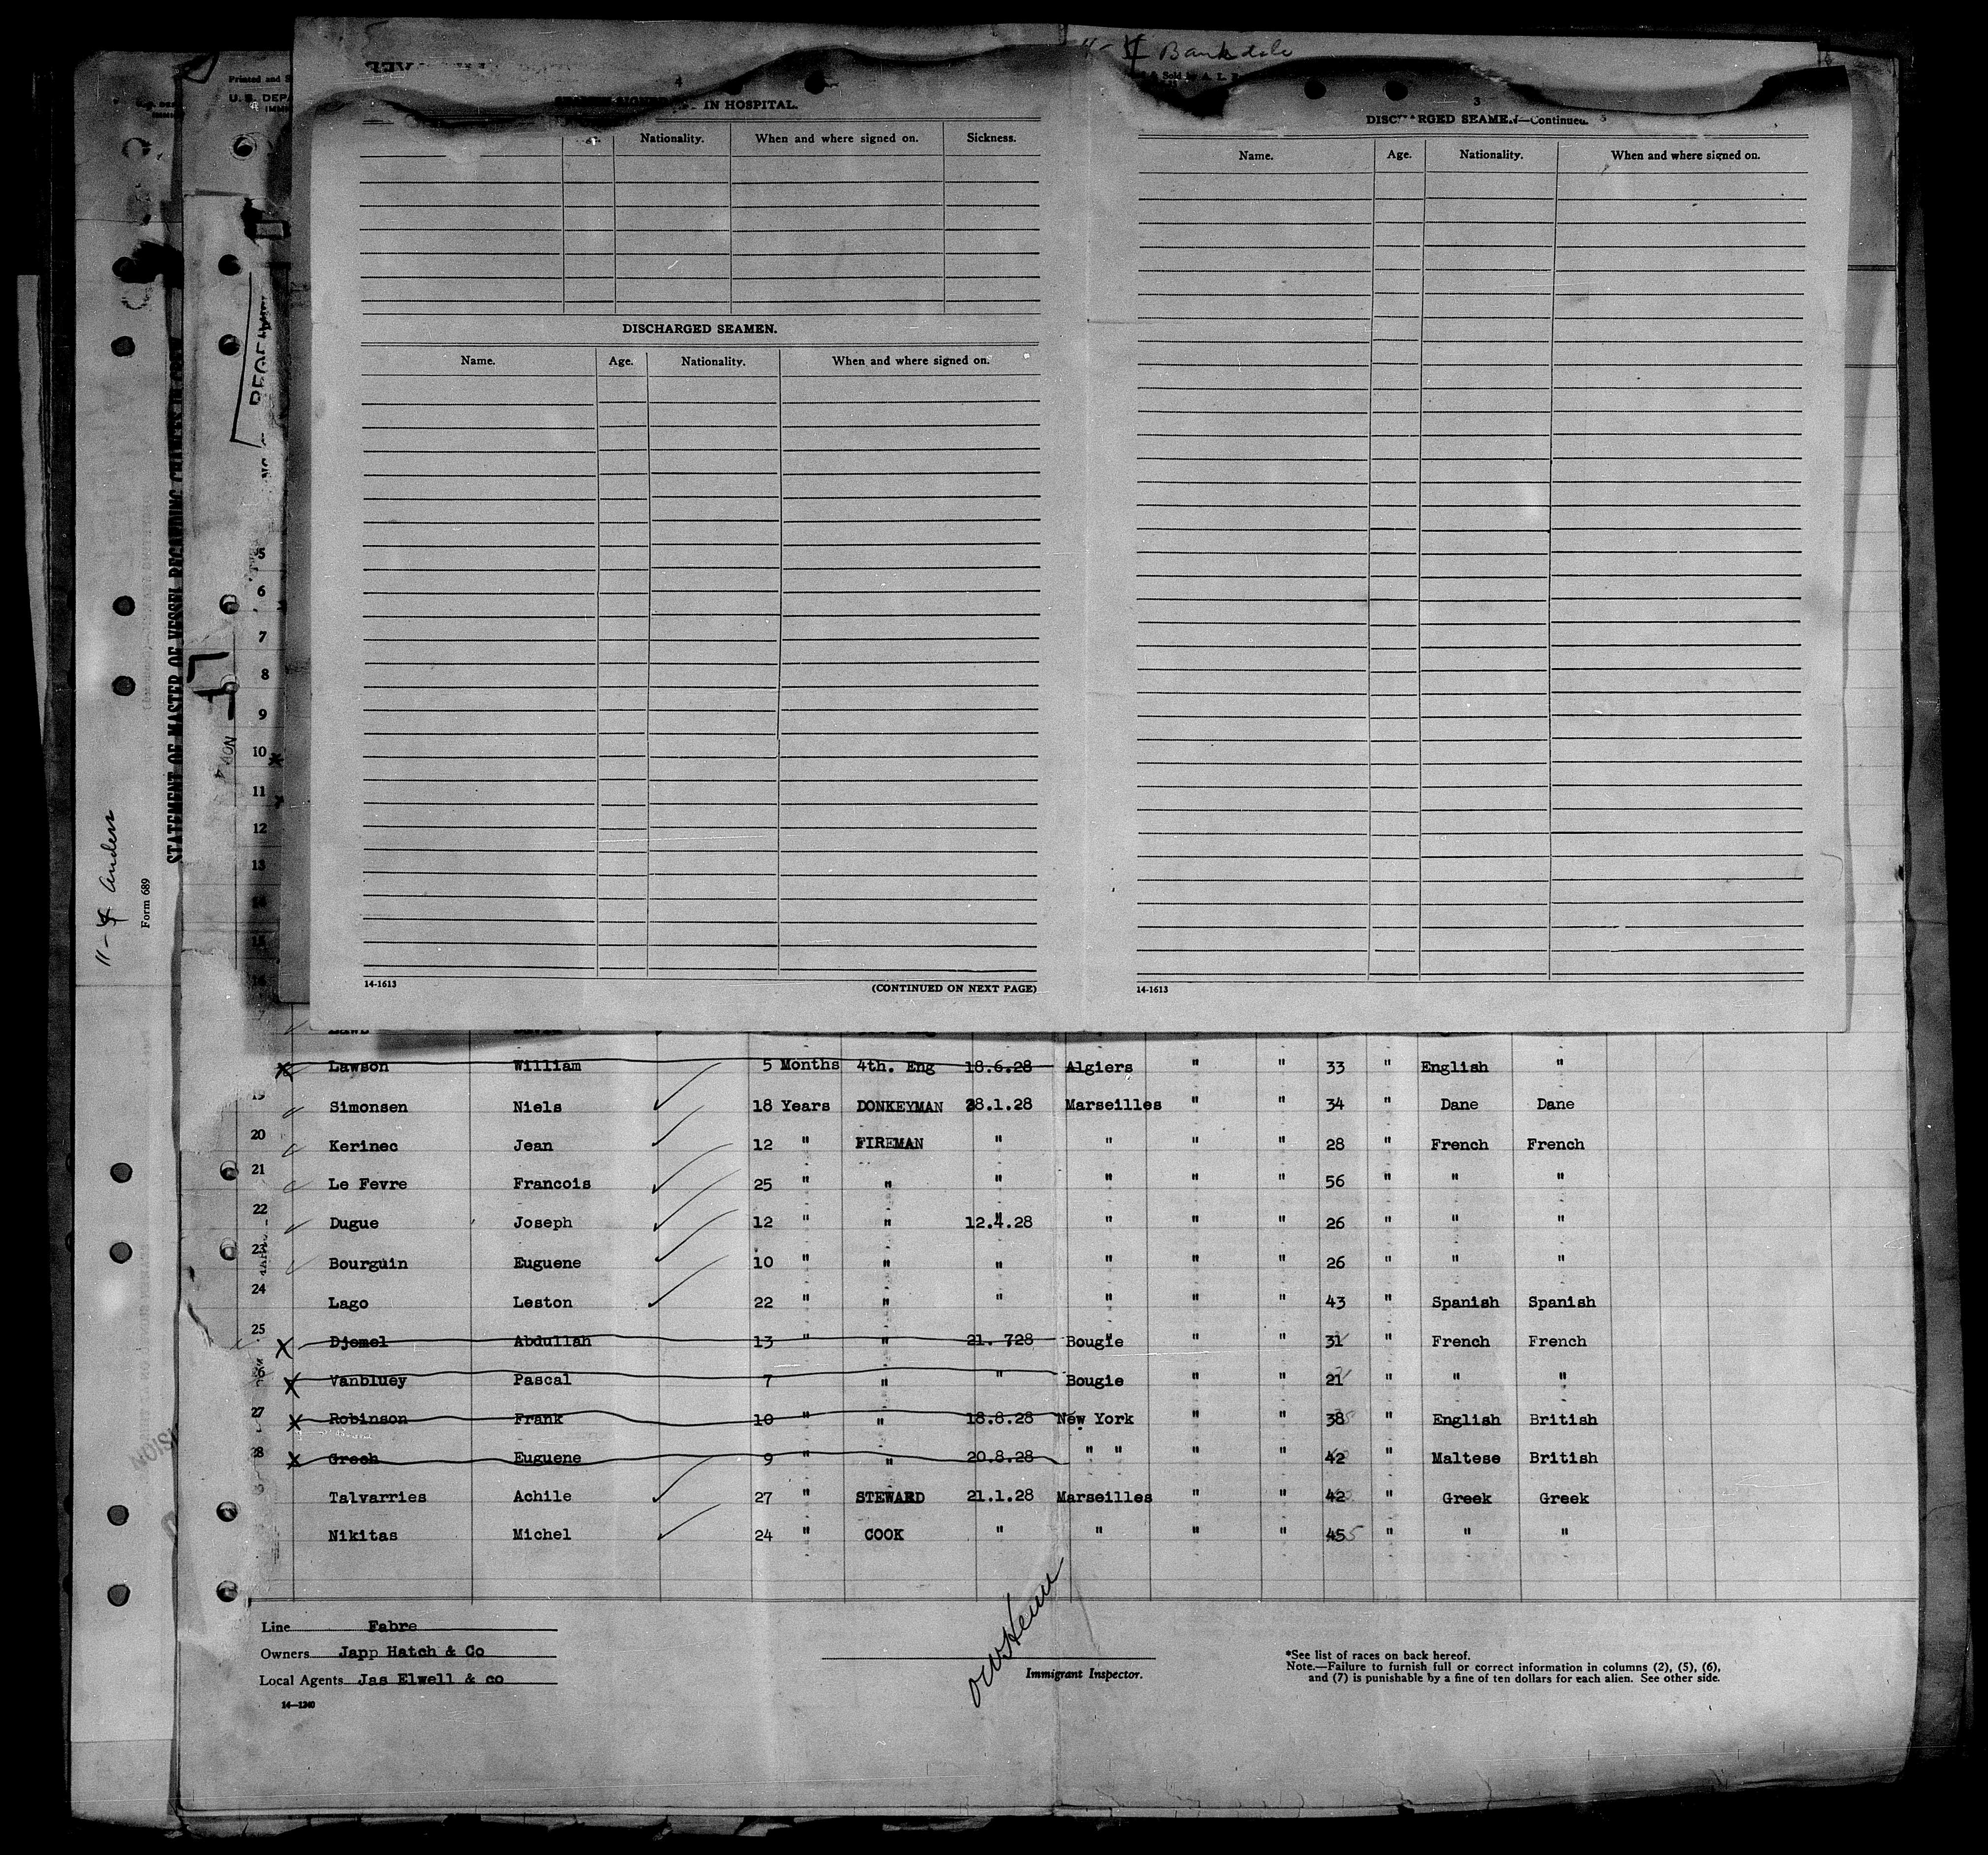 11-4 Bankdale
4
IN HOSPITAL.
Nationality. When and where signed on. Sickness.
DISCHARGED SEAMEN.
Name. Age. Nationality. When and where signed on.
14-1613 (CONTINUED ON NEXT PAGE)
3
DISCHARGED SEAMEN—Continued.
Name. Age. Nationality. When and where signed on.
14-1613
Printed and
U. S. DEPA
IMM
STATEMENT OF MASTER OF VESSEL REGARDING CHANGES IN CREW
11-4 Anders
Form 689
5
6
7
8
9
10
11
12
13
14
15
16
Lawson William 5 Months 4th. Eng 18.6.28 Algiers " " 33 " English "
19 Simonsen Niels 18 Years DONKEYMAN 28.1.28 Marseilles " " 34 " Dane Dane
20 Kerinec Jean 12 " FIREMAN " " " " 28 " French French
21 Le Fevre Francois 25 " " " " " " 56 " " "
22 Dugue Joseph 12 " " 12.4.28 " " " 26 " " "
23 Bourguin Euguene 10 " " " " " " 26 " " "
24 Lago Leston 22 " " " " " " 43 " Spanish Spanish
25 Djemel Abdullah 13 " " 21. 728 Bougie " " 31 " French French
Vanbluey Pascal 7 " " Bougie " " 21 " " "
27 Robinson Frank 10 " " 18.8.28 New York " " 38 " English British
28 Grech Euguene 9 " " 20.8.28 " " " " 42 " Maltese British
Talvarries Achile 27 " STEWARD 21.1.28 Marseilles " " 42 " Greek Greek
Nikitas Michel 24 " COOK " " " " 45 " " "
Line Fabre
Owners Japp Hatch & Co
Local Agents Jas Elwell & co
14—1240
Immigrant Inspector.
*See list of races on back hereof.
Note.—Failure to furnish full or correct information in columns (2), (5), (6),
and (7) is punishable by a fine of ten dollars for each alien. See other side.